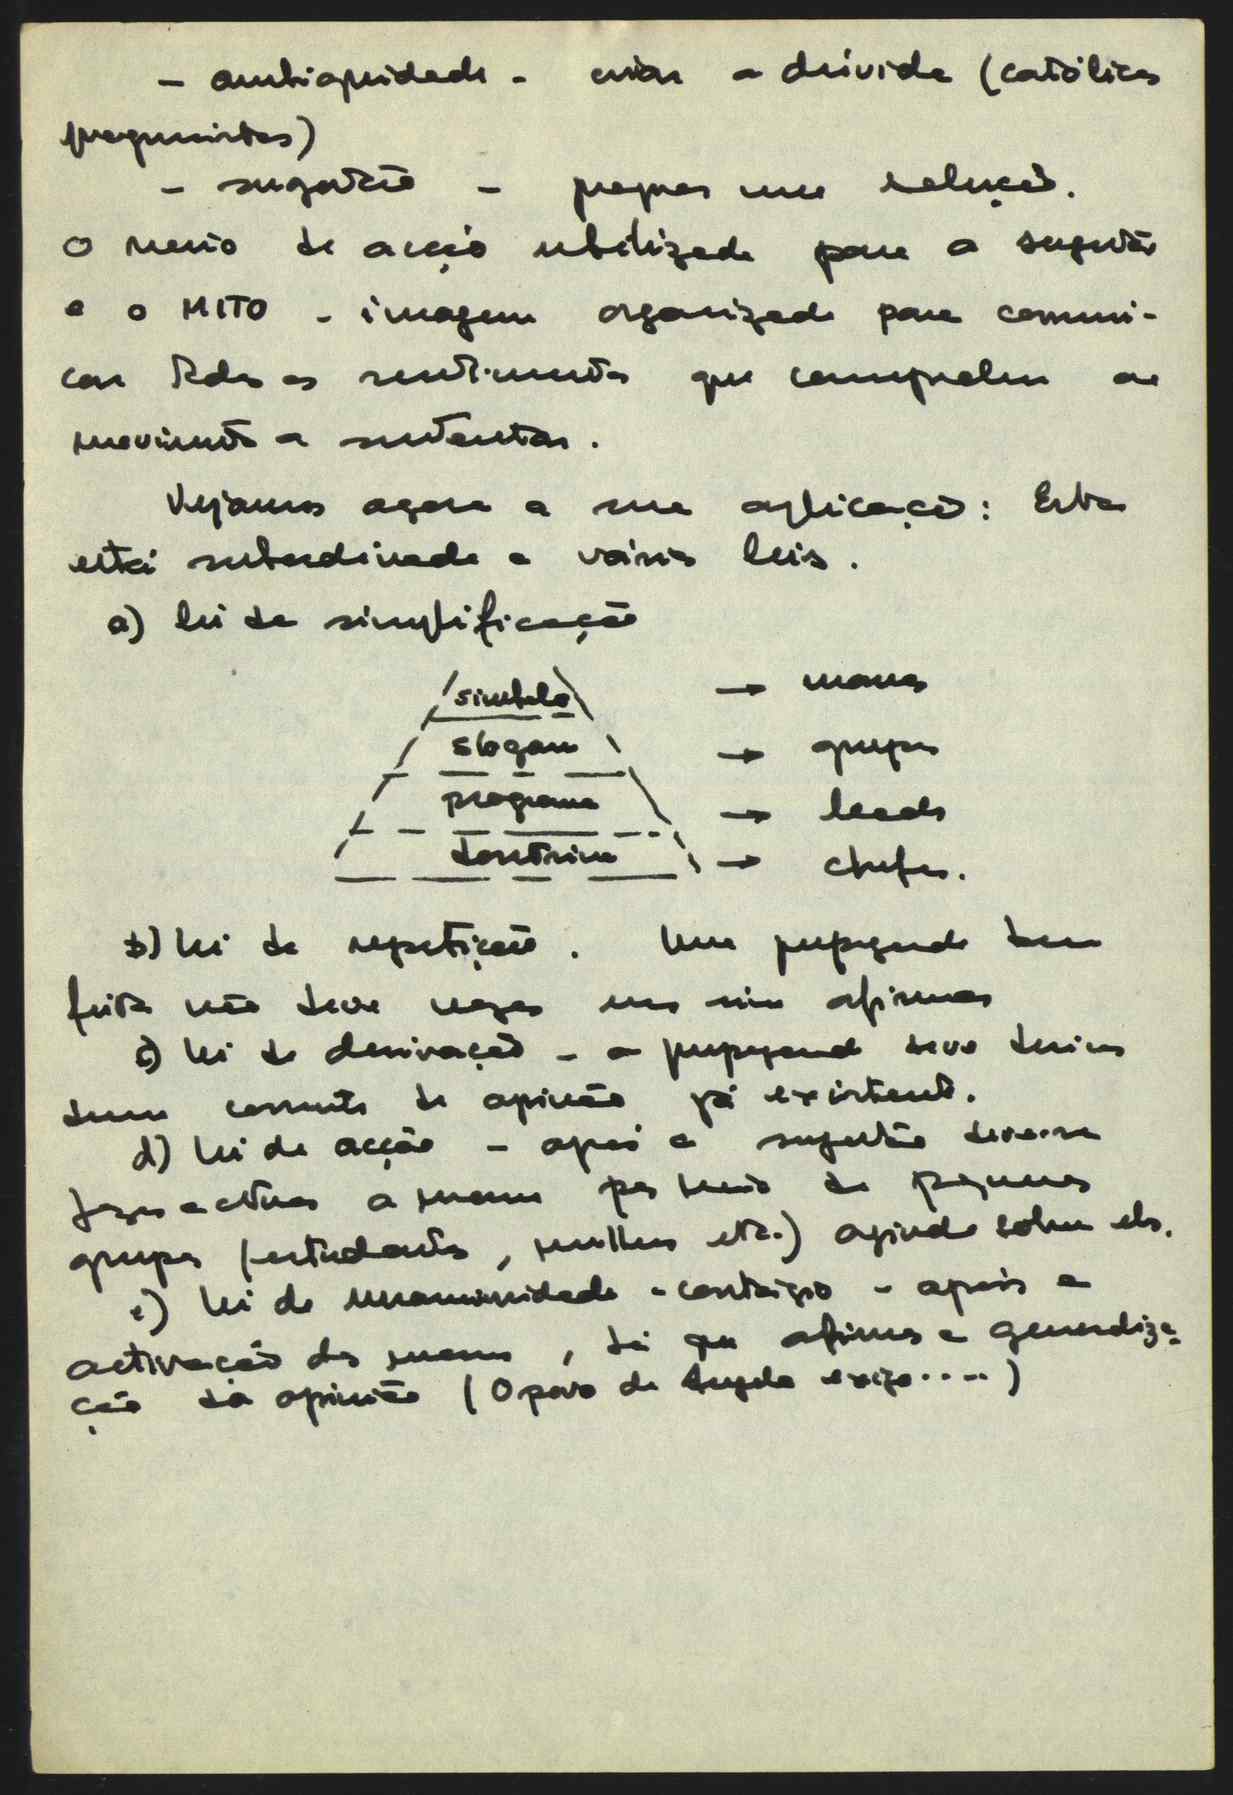 - ambiguidade - criar a dúvida (católicos
progressistas)
- sugestão - propor uma solução.
O meio de acção utilizado para a sugestão
é o MITO - imagem organizada para comuni-
car todos os sentimentos que correspondem ao
movimento a sustentar.
Vejamos agora a sua aplicação: Esta
está subordinada a várias leis.
a) lei da simplificação
símbolo → massas
slogan → grupos
programa → leads
doutrina → chefes.
b) lei da repetição. Uma propaganda bem
feita não deve negar mas sim afirmar
c) lei da derivação - a propaganda deve derivar
duma corrente de opinião já existente.
d) lei da acção - após a sugestão deve-se
fazer actuar a massa por meio de pequenos
grupos (estudantes, mulheres etc.) agindo sobre ela.
e) lei da unanimidade e contágio - após a
activação da massa, há que afirmar a generaliza-
ção da opinião (O povo de Angola exige....)